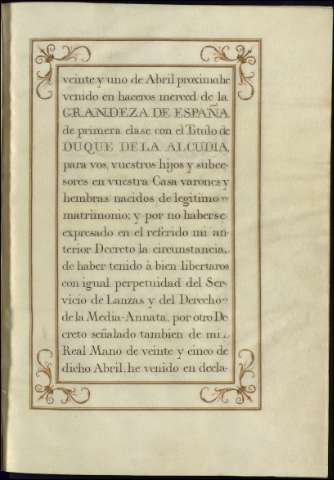 veinte y uno de Abril proximo he
venido en haceros merced de la
GRANDEZA DE ESPAÑA
de primera clase con el Titulo de
DUQUE DE LA ALCUDIA,
para vos, vuestros hijos y subce-
sores en vuestra Casa varones y
hembras nacidos de legitimo
matrimonio; y por no haberse
expresado en el referido mi an-
terior Decreto la circunstancia,
de haber tenido à bien libertaros
con igual perpetuidad del Ser-
vicio de Lanzas y del Derecho
de la Media-Annata, por otro De
creto señalado tambien de mi
Real Mano de veinte y cinco de
dicho Abril, he venido en decla-